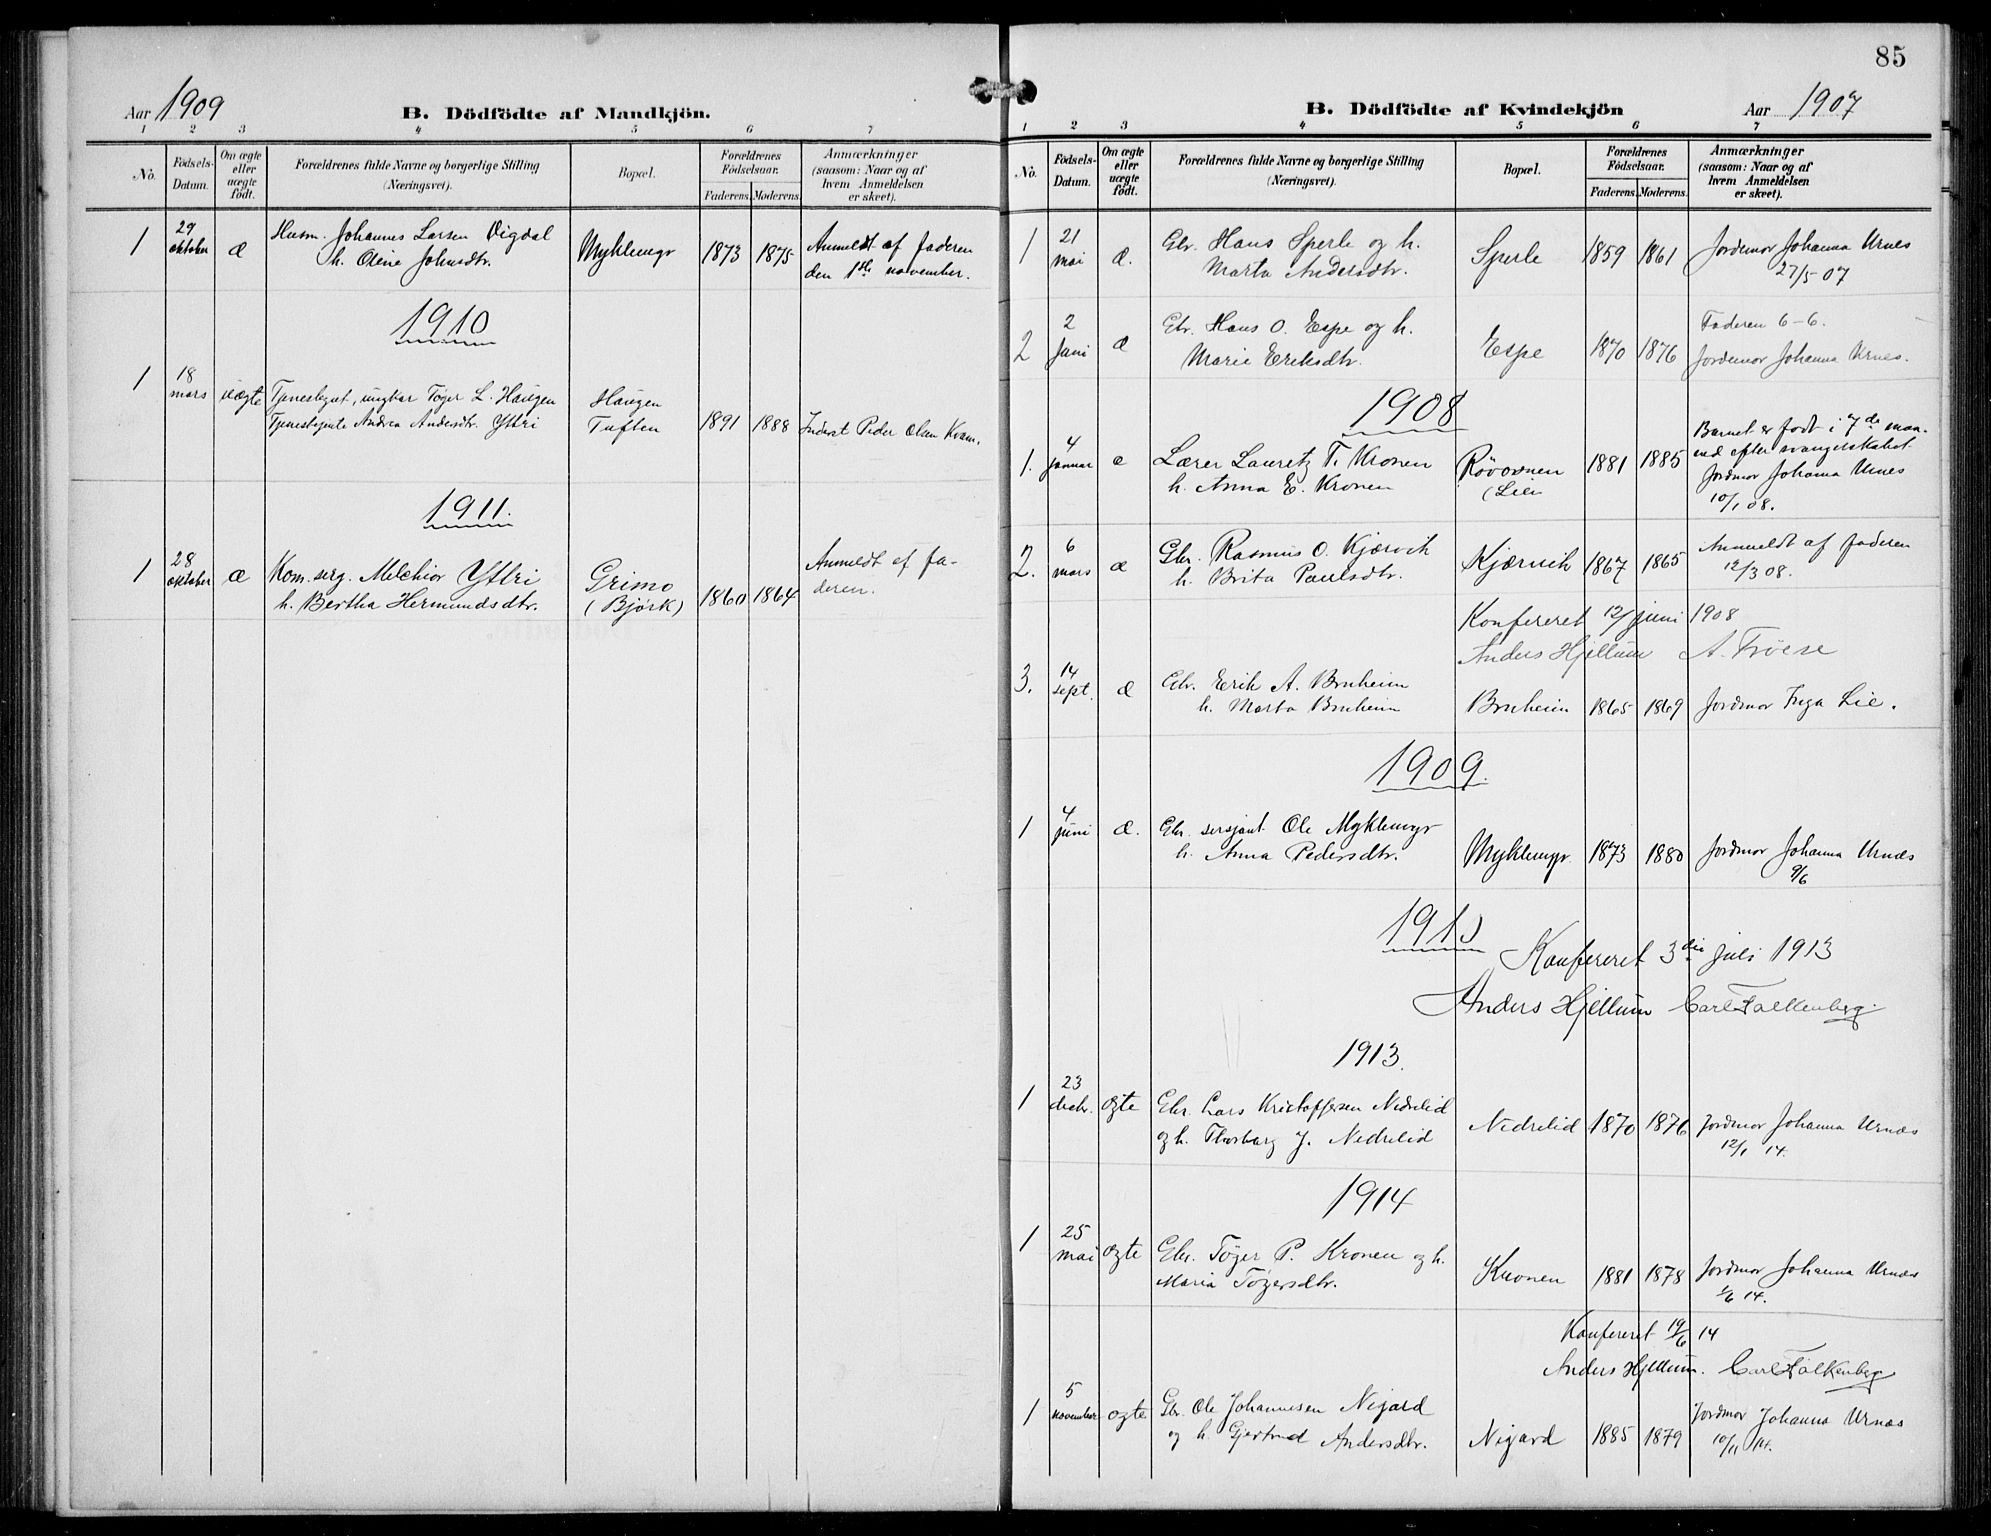 Aar 1909
B. Dödfödte af Mandkjön.
1 2 3 4 5 6 7
No. Födsels-Datum. Om ægte eller uægte födt. Forældrenes fulde Navne og borgerlige Stilling (Næringsvei). Bopæl. Forældrenes Födselsaar. Faderens. Moderens. Anmærkninger (saasom: Naar og af hvem Anmeldelsen er skeet).
1 29 oktober æ Husm. Johannes Larsen Digdal Myklemyr 1873 1875 Anmeldt af faderen
h. Oline Johnsdtr. den 1ste november.
1910
1 18 mars uægte Tjenestegut, ungkar Tøger L. Haugen Haugen 1891 1888 Inderst Peder Olsen Kvam.
Tjenestejente Andrea Andersdtr. Yttri Tuften
1911.
1 28 oktober æ Kom. serg. Melchior Yttri Grimo 1860 1864 Anmeldt af fa-
h. Bertha Hermundsdtr. (Bjørk) deren.
85
B. Dödfödte af Kvindekjön
Aar 1907
1 2 3 4 5 6 7
No. Födsels-Datum. Om ægte eller uægte födt. Forældrenes fulde Navne og borgerlige Stilling (Næringsvei). Bopæl. Forældrenes Födselsaar. Faderens. Moderens. Anmærkninger (saasom: Naar og af hvem Anmeldelsen er skeet).
1 21 mai æ. Gbr. Hans Sperle og h. Sperle 1859 1861 Jordemor Johanna Urnes
Marta Andersdtr. 27/5 07
2 2 juni æ Gbr. Hans O. Espe og h. Espe 1870 1876 Faderen 6-6.
Marie Eriksdtr. Jordemor Johanna Urnes.
1908
1. 4 januar æ Lærer Lauretz T. Kronen Røvovnen 1881 1885 Barnet er født i 7de maa-
h. Anna E. Kronen (Lien ned efter svangerskabet
Jordmor Johanna Urnes
10/1 08.
2. 6 mars æ Gbr. Rasmus O. Kjærvik Kjærvik 1867 1865 Anmeldt af faderen
h. Brita Paulsdtr. 12/3 08.
Konfereret 12/ juni 1908
Anders Hjellum A. Trőese
3. 14 sept. æ Gbr. Erik A. Bruheim Bruheim 1865 1869 Jordmor Inga Lie.
h. Marta Bruheim
1909.
1 4 juni æ. Gbr. sersjant Ole Myklemyr Myklemyr 1873 1880 Jordmor Johanna Urnæs
h. Anna Pedersdtr. 9/6
1913
Konfereret 3die juli 1913
Anders Hjellum Carl Falkenberg.
1913.
1 23 decbr. ægte Gbr. Lars Kristoffersen Nedrelid Nedrelid 1870 1876 Jordmor Johanna Urnæs
og h. Thorbørg J. Nedrelid 12/1 14.
1914
1 25 mai ægte Gbr. Tøger P. Kronen og h. Kronen 1881 1878 Jordmor Johanna Urnæs
Maria Tøgersdtr. 1/6 14.
Konfereret 19/6 14
Anders Hjellum. Carl Falkenberg
1 5 november ægte Gbr. Ole Johannesen Nigard Nigard 1885 1879 Jordmor Johanna Urnæs
og h. Gjertrud Andersdtr. 10/11 14.